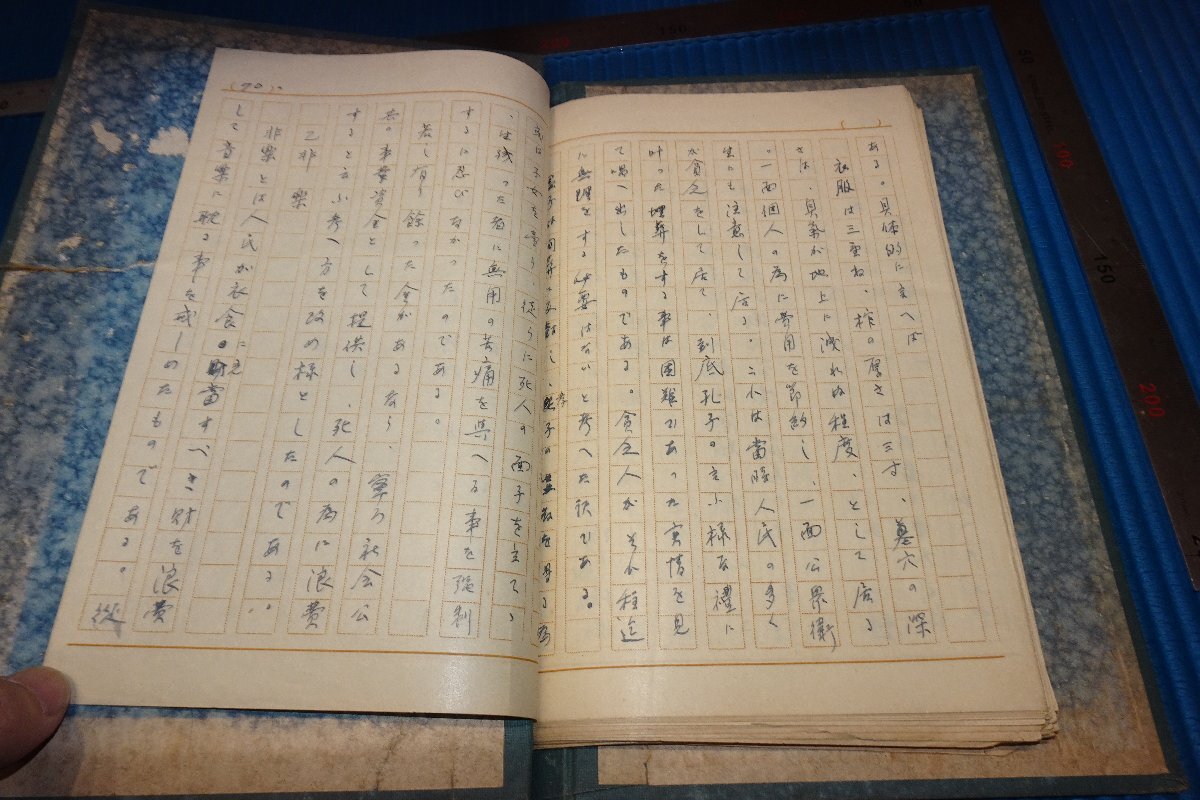 ある。具体的に言へば
衣服は三重ね、棺の厚さは三寸、墓穴の深
さは、臭氣が地上に洩れぬ程度、として居る
。一面個人の為に費用を節約し、一面公衆衛
生にも注意して居る。これは當時人民の多く
が貧乏をして居て、到底孔子の言ふ様な禮に
叶った埋葬をする事は困難であった実情を見
て唱へ出したものである。貧乏人がそれ程迄
に無理をする必要はないと考へた訳である。
或は子女を売り、徒らに死人の面子を立てゝ
、生残った者に無用の苦痛を與へる事を強制
するに忍びなかったのである。
若し有り餘った金があるなら、寧ろ社会公
共の事業資金として提供し、死人の為に浪費
すると云ふ考へ方を改め様としたのである。
乙非樂
非樂とは人民が衣食に充當すべき財を浪費
して音楽に耽る事を戒しめたものである。從
50
100
150
200
150